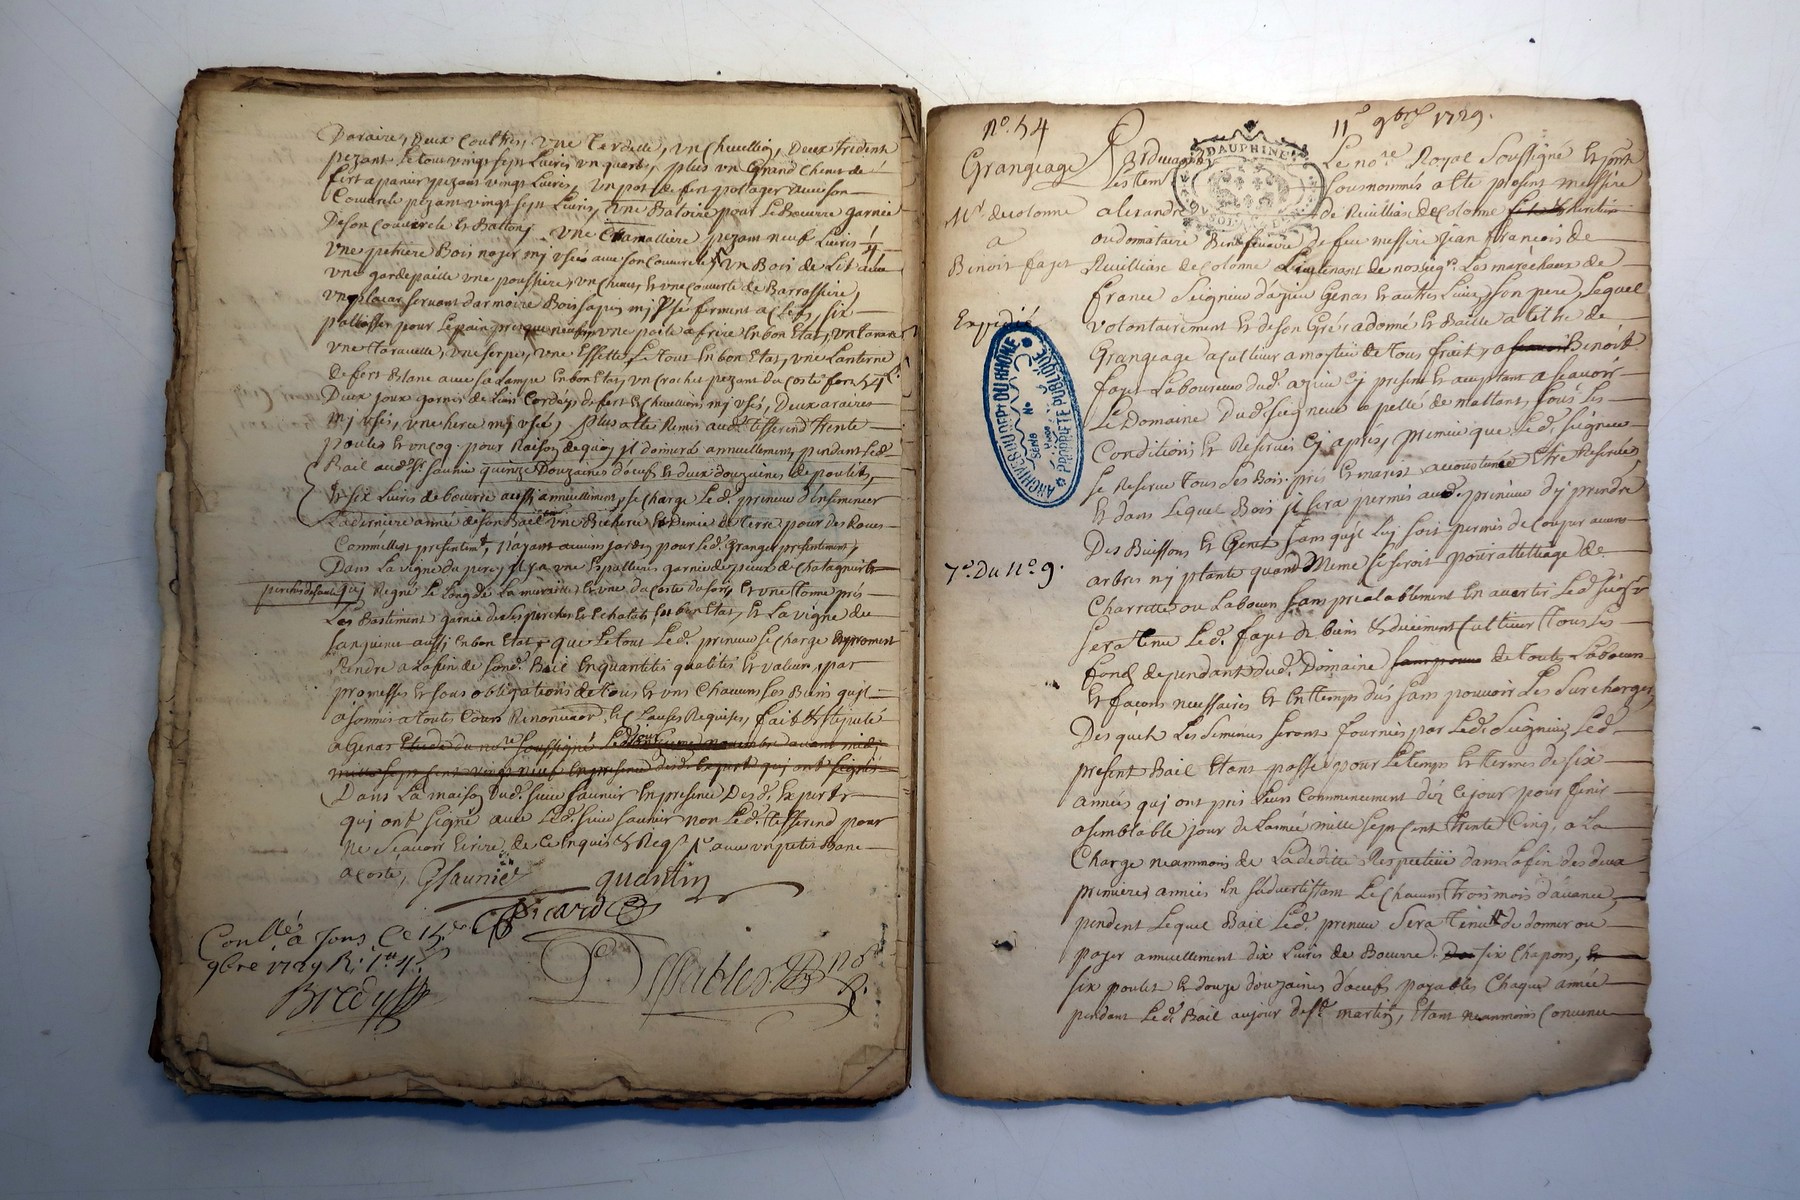 daraire, deux coultres, une terdelle, un chevillon, deux tridents
pezant le tout vingt sept livres un quart, plus un grand chenet de
fert a panier pezant vingt livres, un pot de fert potager avec son
couvercle pezant vingt sept livres, une Batoire pour le Beurre garnie
de son couvercle et Battons, une chamallière pezant neuf livres 1/4
une petrière Bois noyer my usée avec son couvercle, un Bois de lit avec
une gardepaille une poussière, un chevet et une couverte de Barrossière,
un placar servant d'armoire Bois sapin my usé fermant a clefs, six
paillasses pour le pain presque neufve, une poele a frire en bon etat, un
une taravelle, une serpe, une essette le tout en bon etat, une lanterne
de fert blanc avec sa lampe en bon etat, un crochet pezant du costé fort 54 L.
Deux joux garnis de leurs cordes, de fert et chevillons my usés, Deux araires
my usés, une herce my usée, plus a été remis aud. tisserend trente
poules et un coq pour raison de quoy il donnera annuellement pendent led.
Bail aud. sr saunier quinze douzaines d'œufs et deux douzaines de poulets,
et six livres de beurre aussi annuellement, se charge led. preneur d'ensemencer
la derniere année de son Bail une Bicherée et demie de terre pour des Raves
comme il est presentemt, n'ayant aucun jardin pour led. Granger presentement,
Dans la vigne du percy il y a une espallière garnie de pieux de chatagnier et
perches de saule qui regne le long de la muraille et une du costé du soir, et une tonne près
les Bastiment garnie de ses perches et echalats en bon etat, et la vigne du
sanguenu aussi en bon etat que le tout led. preneur se charge et promet
rendre a la fin de sond. Bail en quantités qualités et valeur, par
promesses et sous obligations de tous et uns chacuns ses Biens qu'il
a soumis a toutes cours renonceant et clauses requises, fait et stipulé
a Genas etude du nore soussigné led. jour onzieme novembre avant midy
mille sept cent vingt neuf en presence desd. experts qui ont signés
Dans la maison dud. sieur saunier en presence desd. experts
qui ont signé avec led. sieur saunier non led. tisserend pour
ne sçavoir ecrire de ce enquis et reqs avec un petit Banc
a coste,
GSaunier quantin
Picard
Conllé a Jons ce 15e
9bre 1729 R.
Bredy
DeSablex nore
no. 54
11e 9bre 1729.
Grangeage
Mr. de colonne
a
Benoit fayet
Expedié
7e. Du No 9.
DAUPHINE
ARCHIVES DU DEPt DU RHONE
Série
No
PROPRIÉTÉ PUBLIQUE
Pardevant le nore Royal soussigné et pnt
les tem sousnommés a été present messire
alexandre de Revilliase de Colonne
ordonnataire Beneficiaire de feu messire jean françois de
Revilliase de colonne Lieutenant de nosseigrs. les maréchaux de
france seigneur d'azieu Genas et autres lieux, son pere, lequel
volontairement et de son gré a donné et Baillé a titre de
Grangeage a cultiver a moitié de tous fruits, a sçavoir Benoit
fayet Laboureur dud. azieu cy present et acceptant a sçavoir
Le Domaine dud. seigneur apellé de mattant, sous les
conditions et reserves cy après, premier que led. seigneur
se reserve tous les Bois, prés et marest accoustumé etre reservés,
et dans lequel Bois il sera permis aud. preneur d'y prendre
Des Buissons et Genest sans qu'il luy soit permis de couper aucuns
arbres ny plante quand meme se seroit pour attellage de
charrette ou Labour sans prealablement en avertir led. seigr
sera tenu led. fayet de bien et duement cultiver tous les
fond dependant dud. Domaine sans pouvoir de toutes Labours
et façons necessaires et en temps dus sans pouvoir les surcharger,
Desquels les semences seront fournies par led. seigneur, led.
present Bail étant passé pour le temps et termes de six
années qui ont pris leurs commencement dez ce jour pour finir
a semblable jour de l'année mille sept cent trente cinq, a la
charge neanmoins de La deditte respective dans la fin des deux
premieres années en s'advertissant le chacun trois mois d'avance,
pendent lequel Bail led. preneur sera tenu de donner ou
payer annuellement dix livres de Beurre, six chapons, et
six poulet et douze douzaines d'œufs payables chaque année
pendant led. Bail au jour de st. martin, étant neanmoins convenu